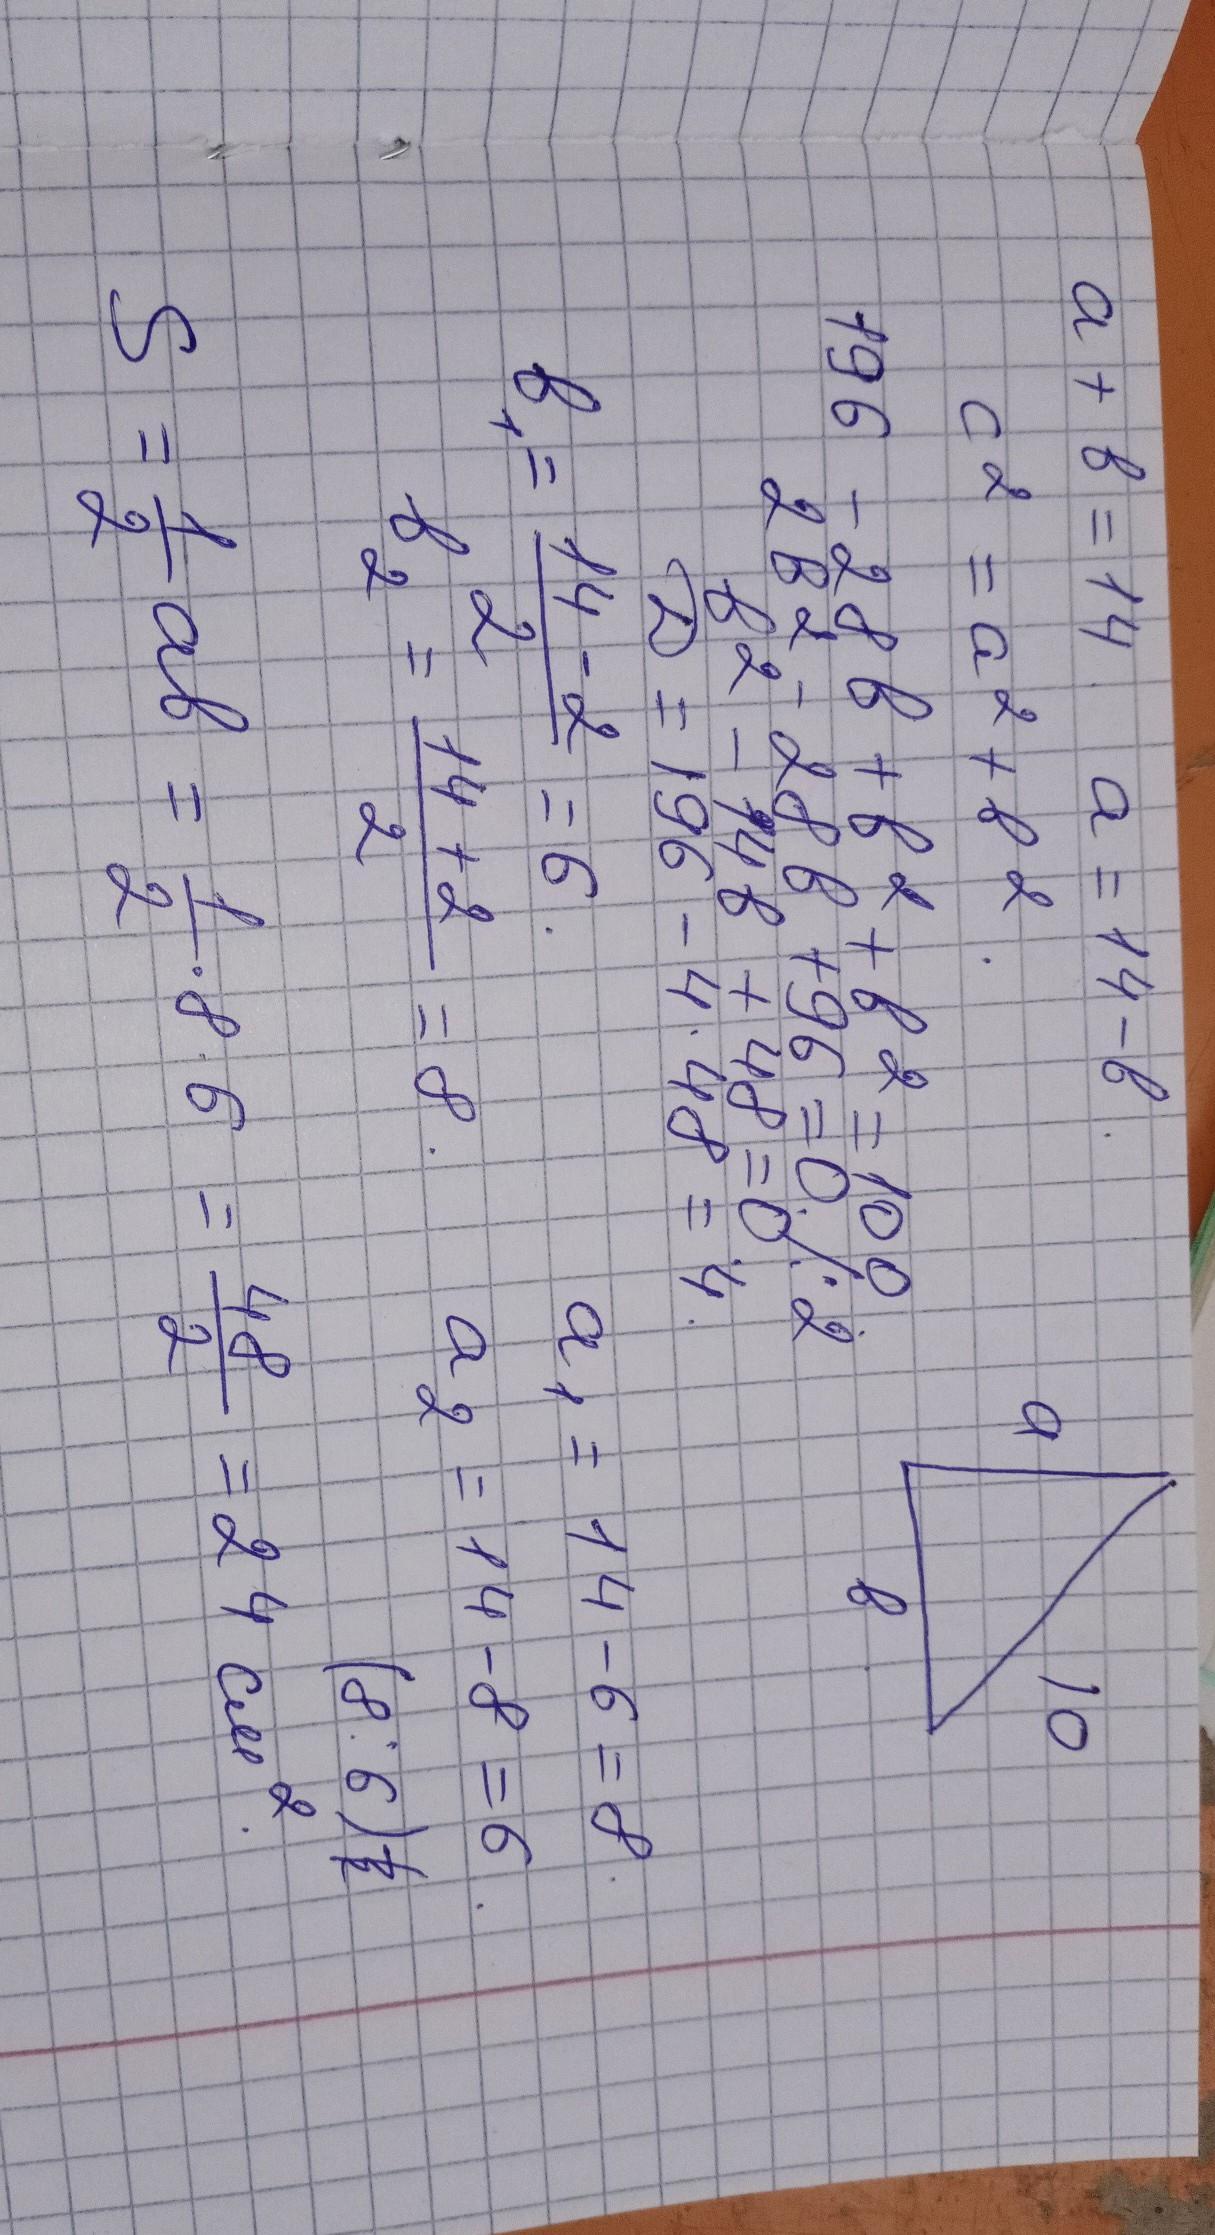 a + b = 14. a = 14 - b.
c² = a² + b².
196 - 28b + b² + b² = 100
2b² - 28b + 96 = 0. /:2
b² - 14b + 48 = 0
D = 196 - 4·48 = 4.
b₁ = (14 - 2)/2 = 6. a₁ = 14 - 6 = 8.
b₂ = (14 + 2)/2 = 8. a₂ = 14 - 8 = 6.
(8·6)
S = 1/2 ab = 1/2 · 8 · 6 = 48/2 = 24 см².
a
10
b